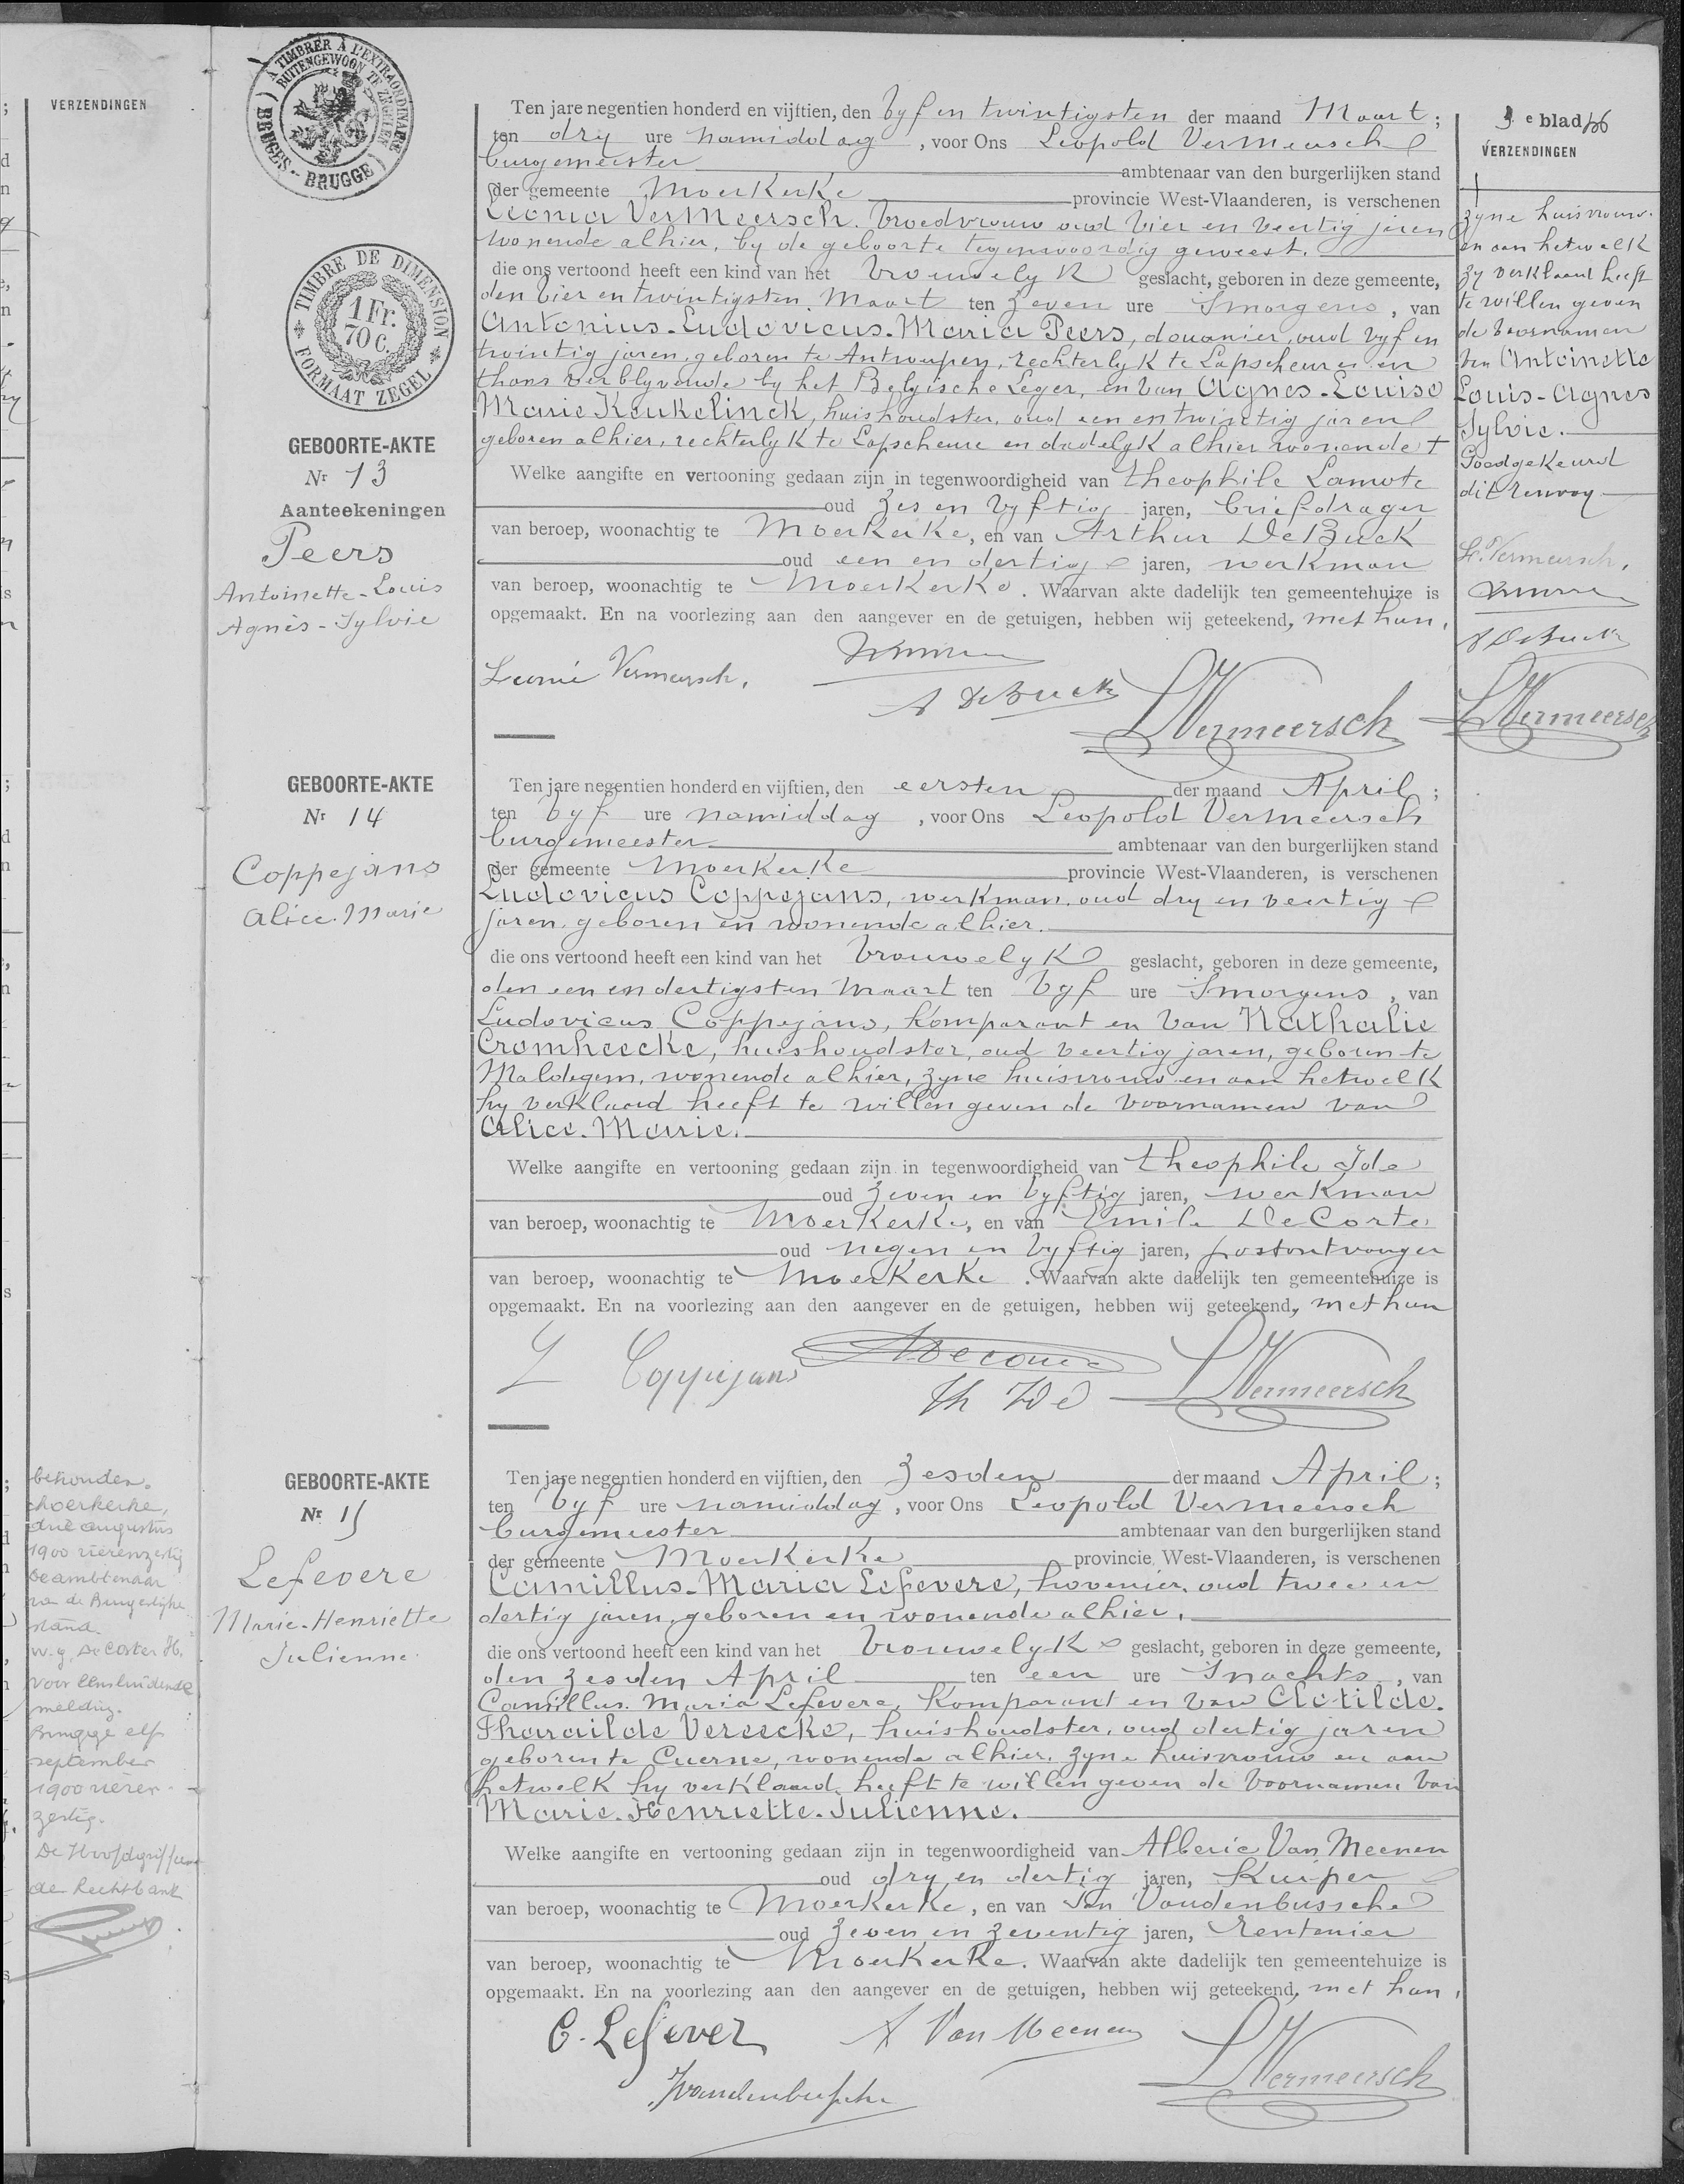 VERZENDINGEN
behouden.
Moerkerke,
drie augustus
1900 vierenzestig
De ambtenaar
van de Burgerlijke
stand.
w.g. De Coster H.
voor eensluidende
melding.
Brugge elf
september
1900 vieren-
zestig.
De Hoofdgriffier
der Rechtbank
A TIMBRER À L'EXTRAORDINAIRE
BUITENGEWOON TE ZEGELEN
( BRUGES - BRUGGE )
TIMBRE DE DIMENSION
1 Fr.
70 C.
FORMAAT ZEGEL
GEBOORTE-AKTE
Nr 13
Aanteekeningen
Peers
Antoinette-Louis
Agnès-Sylvie
Ten jare negentien honderd en vijftien, den vyf en twintigsten der maand Maart ;
ten dry ure namiddag , voor Ons Leopold Vermeersch
burgemeester ambtenaar van den burgerlijken stand
der gemeente Moerkerke provincie West-Vlaanderen, is verschenen
Leonia Vermeersch. Vroedvrouw oud vier en veertig jaren
wonende alhier, by de geboorte tegenwoordig geweest.
die ons vertoond heeft een kind van het vrouwelyk geslacht, geboren in deze gemeente,
den vier en twintigsten Maart ten zeven ure Smorgens , van
Antonius-Ludovicus-Maria Peers, douanier, oud vyf en
twintig jaren, geboren te Antwerpen, rechterlyk te Lapscheure en
thans verblyvende by het Belgische Leger, en van Agnes-Louise
Marie Keukelinck, huishoudster, oud een en twintig jaren
geboren alhier, rechterlyk te Lapscheure en dadelyk alhier wonende +
Welke aangifte en vertooning gedaan zijn in tegenwoordigheid van Theophile Lamote
oud zes en vyftig jaren, briefdrager
van beroep, woonachtig te Moerkerke, en van Arthur DeBuck
oud een en dertig jaren, werkman
van beroep, woonachtig te Moerkerke. Waarvan akte dadelijk ten gemeentehuize is
opgemaakt. En na voorlezing aan den aangever en de getuigen, hebben wij geteekend, met hun.
Leonie Vermeersch.
A DeBuck
LVermeersch
3e blad
VERZENDINGEN
zyne huisvrouw.
en aan hetwelk
zy verklaard heeft
te willen geven
de voornamen
van Antoinette
Louis-Agnes
Sylvie.
Goedgekeurd
dit renvoy
L. Vermeersch.
A DeBuck
LVermeersch
GEBOORTE-AKTE
Nr 14
Coppejans
Alice-Marie
Ten jare negentien honderd en vijftien, den eersten der maand April ;
ten vyf ure namiddag , voor Ons Leopold Vermeersch
burgemeester ambtenaar van den burgerlijken stand
der gemeente Moerkerke provincie West-Vlaanderen, is verschenen
Ludovicus Coppejans, werkman. oud dry en veertig
jaren, geboren en wonende alhier.
die ons vertoond heeft een kind van het vrouwelyk geslacht, geboren in deze gemeente,
den een en dertigsten Maart ten vyf ure Smorgens , van
Ludovicus Coppejans, komparant en van Nathalie
Cromheecke, huishoudster, oud veertig jaren, geboren te
Maldegem, wonende alhier, zyne huisvrouw en aan hetwelk
hy verklaard heeft te willen geven de voornamen van
Alice-Marie.
Welke aangifte en vertooning gedaan zijn in tegenwoordigheid van Theophile Ide
oud zeven en vyftig jaren, werkman
van beroep, woonachtig te Moerkerke, en van Emile DeCorte
oud negen en vyftig jaren, postontvanger
van beroep, woonachtig te Moerkerke . Waarvan akte dadelijk ten gemeentehuize is
opgemaakt. En na voorlezing aan den aangever en de getuigen, hebben wij geteekend, met hun
L Coppejans
Th Ide
LVermeersch
GEBOORTE-AKTE
Nr 15
Lefevere
Marie-Henriette
Julienne
Ten jare negentien honderd en vijftien, den zesden der maand April ;
ten vyf ure namiddag , voor Ons Leopold Vermeersch
burgemeester ambtenaar van den burgerlijken stand
der gemeente Moerkerke provincie West-Vlaanderen, is verschenen
Camillus-Maria Lefevere, hovenier, oud twee en
dertig jaren, geboren en wonende alhier.
die ons vertoond heeft een kind van het vrouwelyk geslacht, geboren in deze gemeente,
den zesden April ten een ure Snachts , van
Camillus. Maria Lefevere, komparant en van Clotilde.
Pharaïlde Vereecke, huishoudster, oud dertig jaren
geboren te Cuerne, wonende alhier, zyne huisvrouw en aan
hetwelk hy verklaard heeft te willen geven de voornamen van
Marie-Henriette-Julienne.
Welke aangifte en vertooning gedaan zijn in tegenwoordigheid van Alberic Van Meenen
oud dry en dertig jaren, Kuiper
van beroep, woonachtig te Moerkerke, en van Jan Vandenbussche
oud zeven en zeventig jaren, rentenier
van beroep, woonachtig te Moerkerke. Waarvan akte dadelijk ten gemeentehuize is
opgemaakt. En na voorlezing aan den aangever en de getuigen, hebben wij geteekend, met hun.
C. Lefever A Van Meenen
JVandenbussche
LVermeersch